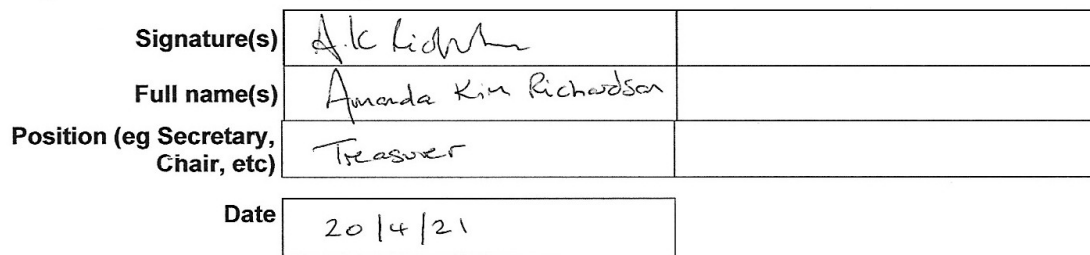 Signature(s) A.K Richardson
Full name(s) Amanda Kim Richardson
Position (eg Secretary,
Chair, etc) Treasurer
Date 20/4/21